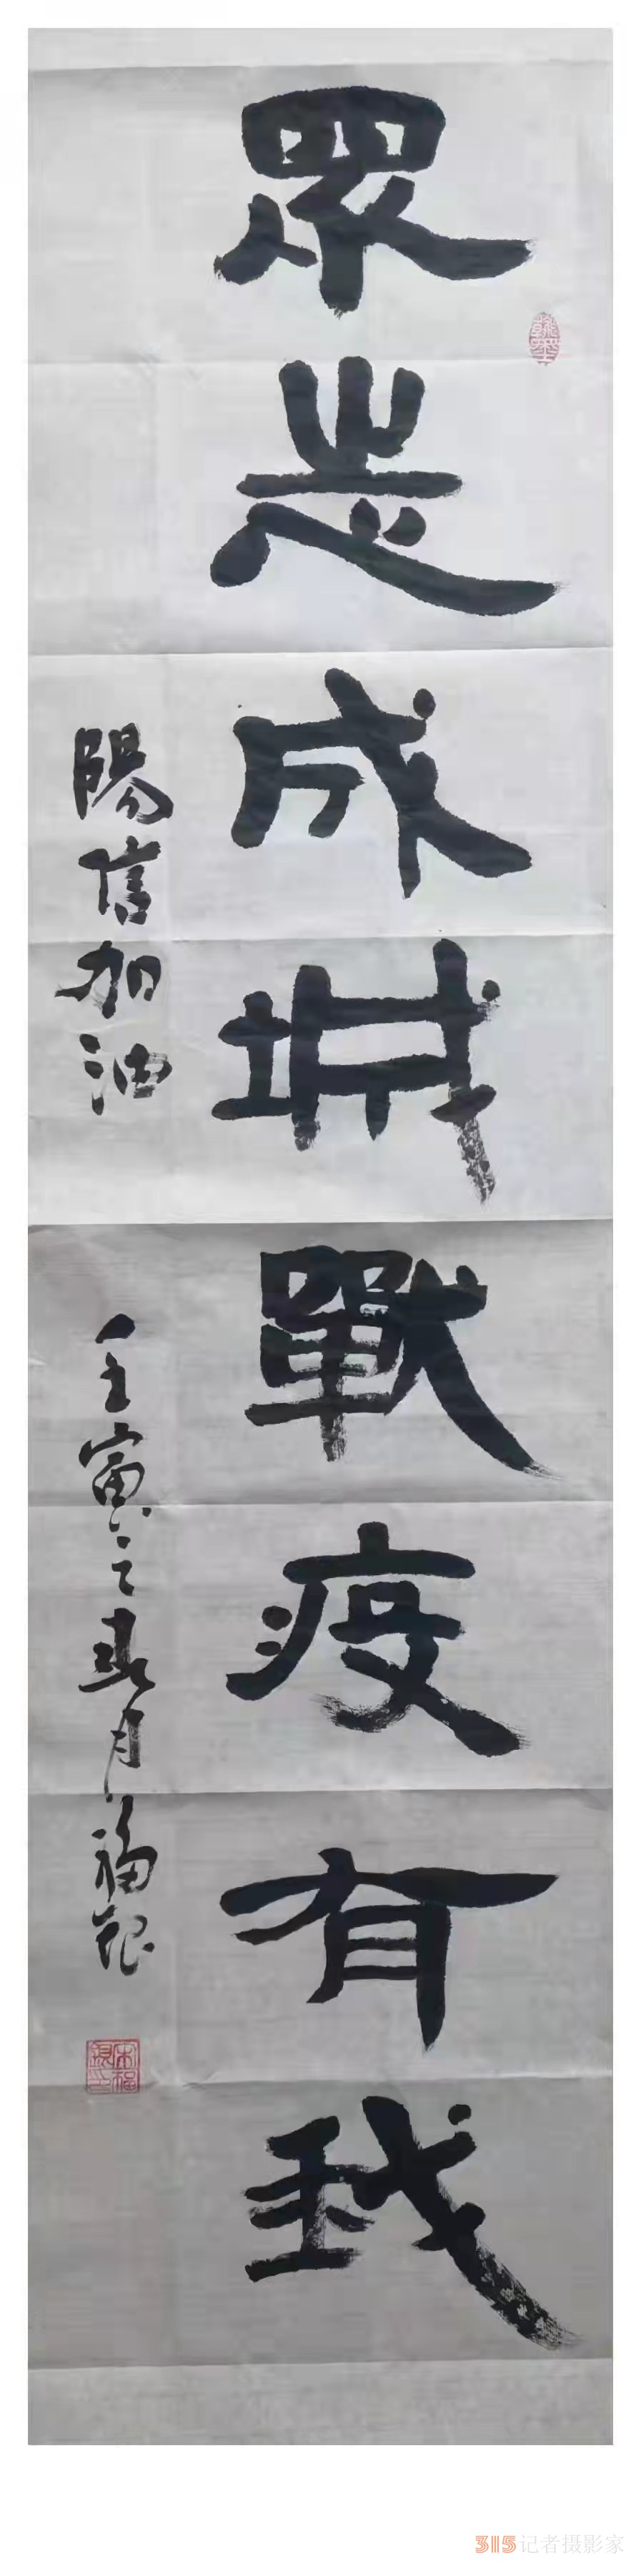 眾志成城戰疫有我
翰墨
陽信加油
壬寅之春月福銀
宋福銀印
315记者摄影家